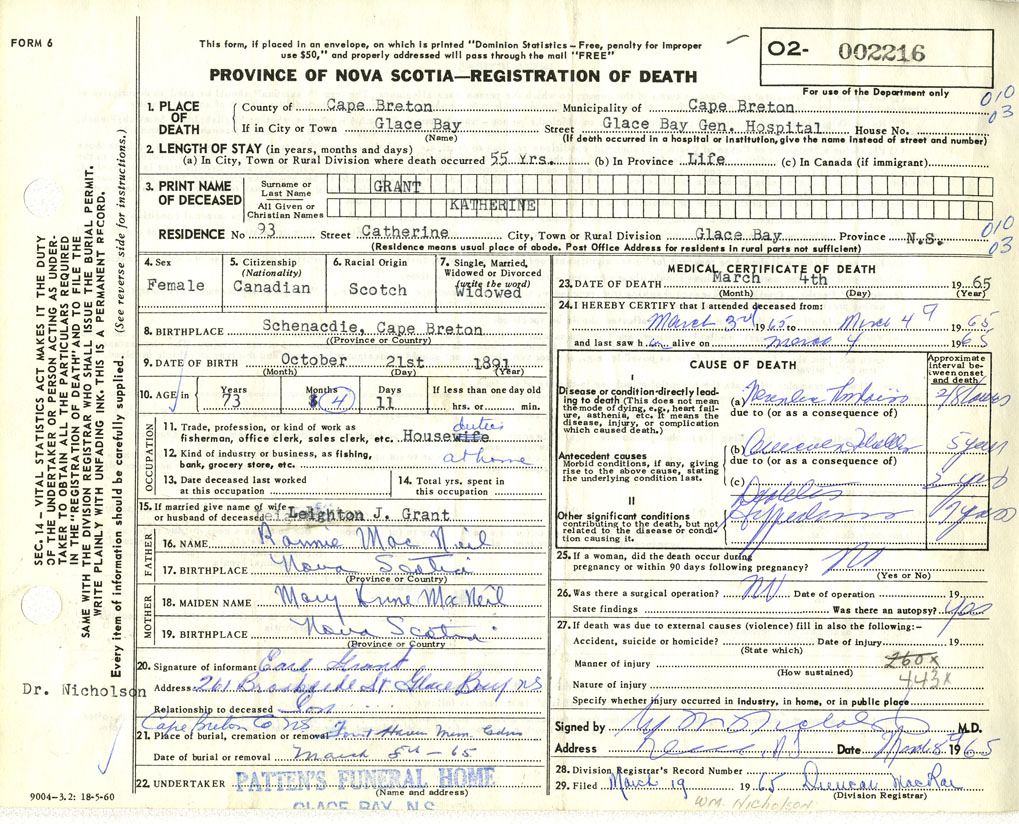 FORM 6
This form, if placed in an envelope, on which is printed "Dominion Statistics – Free, penalty for improper
use $50," and properly addressed will pass through the mail "FREE"
PROVINCE OF NOVA SCOTIA—REGISTRATION OF DEATH
O2- 002216
For use of the Department only
010
03
1. PLACE OF DEATH
County of Cape Breton Municipality of Cape Breton
If in City or Town Glace Bay Street Glace Bay Gen. Hospital House No.
(Name) (If death occurred in a hospital or institution, give the name instead of street and number)
2. LENGTH OF STAY (in years, months and days)
(a) In City, Town or Rural Division where death occurred 55 Yrs. (b) In Province Life (c) In Canada (if immigrant)
3. PRINT NAME OF DECEASED
Surname or Last Name GRANT
All Given or Christian Names KATHERINE
RESIDENCE No 93 Street Catherine City, Town or Rural Division Glace Bay Province N.S.
010
03
(Residence means usual place of abode. Post Office Address for residents in rural parts not sufficient)
4. Sex
Female
5. Citizenship
(Nationality)
Canadian
6. Racial Origin
Scotch
7. Single, Married,
Widowed or Divorced
(write the word)
Widowed
8. BIRTHPLACE Schenacdie, Cape Breton
((Province or Country)
9. DATE OF BIRTH October 21st 1891
(Month) (Day) (Year)
10. AGE in
Years 73
Months 4
Days 11
If less than one day old
hrs. or min.
OCCUPATION
11. Trade, profession, or kind of work as
fisherman, office clerk, sales clerk, etc. Housewife duties
12. Kind of industry or business, as fishing,
bank, grocery store, etc. at home
13. Date deceased last worked
at this occupation
14. Total yrs. spent in
this occupation
15. If married give name of wife
or husband of deceased Leighton J. Grant
FATHER
16. NAME Rannie Mac Neil
17. BIRTHPLACE Nova Scotia
(Province or Country)
MOTHER
18. MAIDEN NAME Mary Anne MacNeil
19. BIRTHPLACE Nova Scotia
(Province or Country)
20. Signature of informant Earl Grant
Address 261 Brookside St Glace Bay NS
Relationship to deceased Son
Cape Breton Co NS
21. Place of burial, cremation or removal Haven Mem.
Date of burial or removal March 8th - 65
22. UNDERTAKER PATTEN'S FUNERAL HOME
(Name and address)
GLACE BAY, N.S.
9004-3.2: 18-5-60
MEDICAL CERTIFICATE OF DEATH
23. DATE OF DEATH March 4th 1965
(Month) (Day) (Year)
24. I HEREBY CERTIFY that I attended deceased from:
March 3rd 1965 to March 4 1965
and last saw h er alive on March 4 1965
CAUSE OF DEATH
Approximate
interval between onset
and death
I
Disease or condition directly leading to death (This does not mean
the mode of dying, e.g., heart failure, asthenia, etc. It means the
disease, injury, or complication
which caused death.)
(a)
due to (or as a consequence of)
Antecedent causes
Morbid conditions, if any, giving
rise to the above cause, stating
the underlying condition last.
(b) 5 years
due to (or as a consequence of)
(c) years
II
Other significant conditions
contributing to the death, but not
related to the disease or condition causing it.
Diabetes
years
25. If a woman, did the death occur during
pregnancy or within 90 days following pregnancy? No
(Yes or No)
26. Was there a surgical operation? No Date of operation 19
State findings Was there an autopsy? Yes
27. If death was due to external causes (violence) fill in also the following:-
Accident, suicide or homicide? Date of injury 19
(State which)
Manner of injury
(How sustained)
260x
443x
Nature of injury
Specify whether injury occurred in industry, in home, or in public place
Signed by M.D.
Address Date March 8 1965
28. Division Registrar's Record Number
29. Filed March 19 1965 Duncan MacRae
(Division Registrar)
Wm. Nicholson
SEC. 14—VITAL STATISTICS ACT MAKES IT THE DUTY
OF THE UNDERTAKER OR PERSON ACTING AS UNDERTAKER TO OBTAIN ALL THE PARTICULARS REQUIRED
IN THE "REGISTRATION OF DEATH" AND TO FILE THE
SAME WITH THE DIVISION REGISTRAR WHO SHALL ISSUE THE BURIAL PERMIT.
WRITE PLAINLY WITH UNFADING INK. THIS IS A PERMANENT RECORD.
Every item of information should be carefully supplied. (See reverse side for instructions.)
Dr. Nicholson